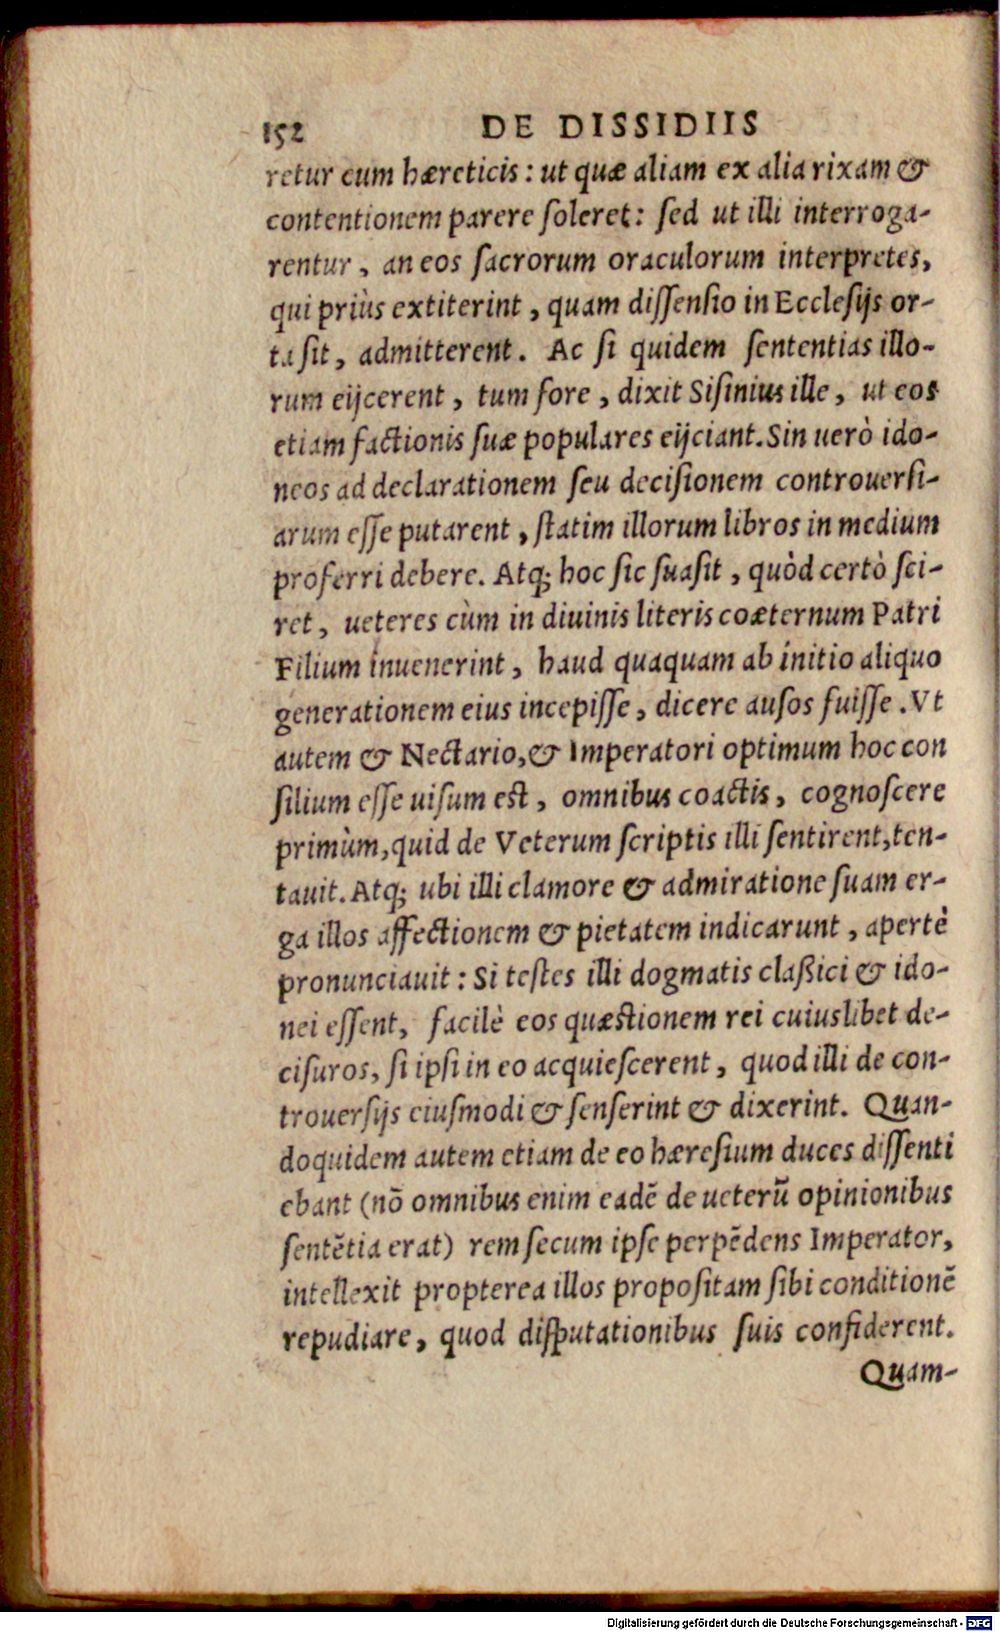 152 DE DISSIDIIS
retur cum hæreticis: ut quæ aliam ex alia rixam &
contentionem parere soleret: sed ut illi interroga-
rentur, an eos sacrorum oraculorum interpretes,
qui priùs extiterint, quam dissensio in Ecclesijs or-
ta sit, admitterent. Ac si quidem sententias illo-
rum eijcerent, tum fore, dixit Sisinius ille, ut eos
etiam factionis suæ populares eijciant. Sin uerò ido-
neos ad declarationem seu decisionem controuersi-
arum esse putarent, statim illorum libros in medium
proferri debere. Atq; hoc sic suasit, quòd certò sci-
ret, ueteres cùm in diuinis literis coæternum Patri
Filium inuenerint, haud quaquam ab initio aliquo
generationem eius incepisse, dicere ausos fuisse. Vt
autem & Nectario, & Imperatori optimum hoc con
silium esse uisum est, omnibus coactis, cognoscere
primùm, quid de Veterum scriptis illi sentirent, ten-
tauit. Atq; ubi illi clamore & admiratione suam er-
ga illos affectionem & pietatem indicarunt, apertè
pronunciauit: Si testes illi dogmatis claßici & ido-
nei essent, facilè eos quæstionem rei cuiuslibet de-
cisuros, si ipsi in eo acquiescerent, quod illi de con-
trouersijs eiusmodi & senserint & dixerint. Quan-
doquidem autem etiam de eo hæresium duces dissenti
ebant (nō omnibus enim eadē de ueterū opinionibus
sentētia erat) rem secum ipse perpēdens Imperator,
intellexit propterea illos propositam sibi conditionē
repudiare, quod disputationibus suis confiderent.
Quam-
Digitalisierung gefördert durch die Deutsche Forschungsgemeinschaft - DFG